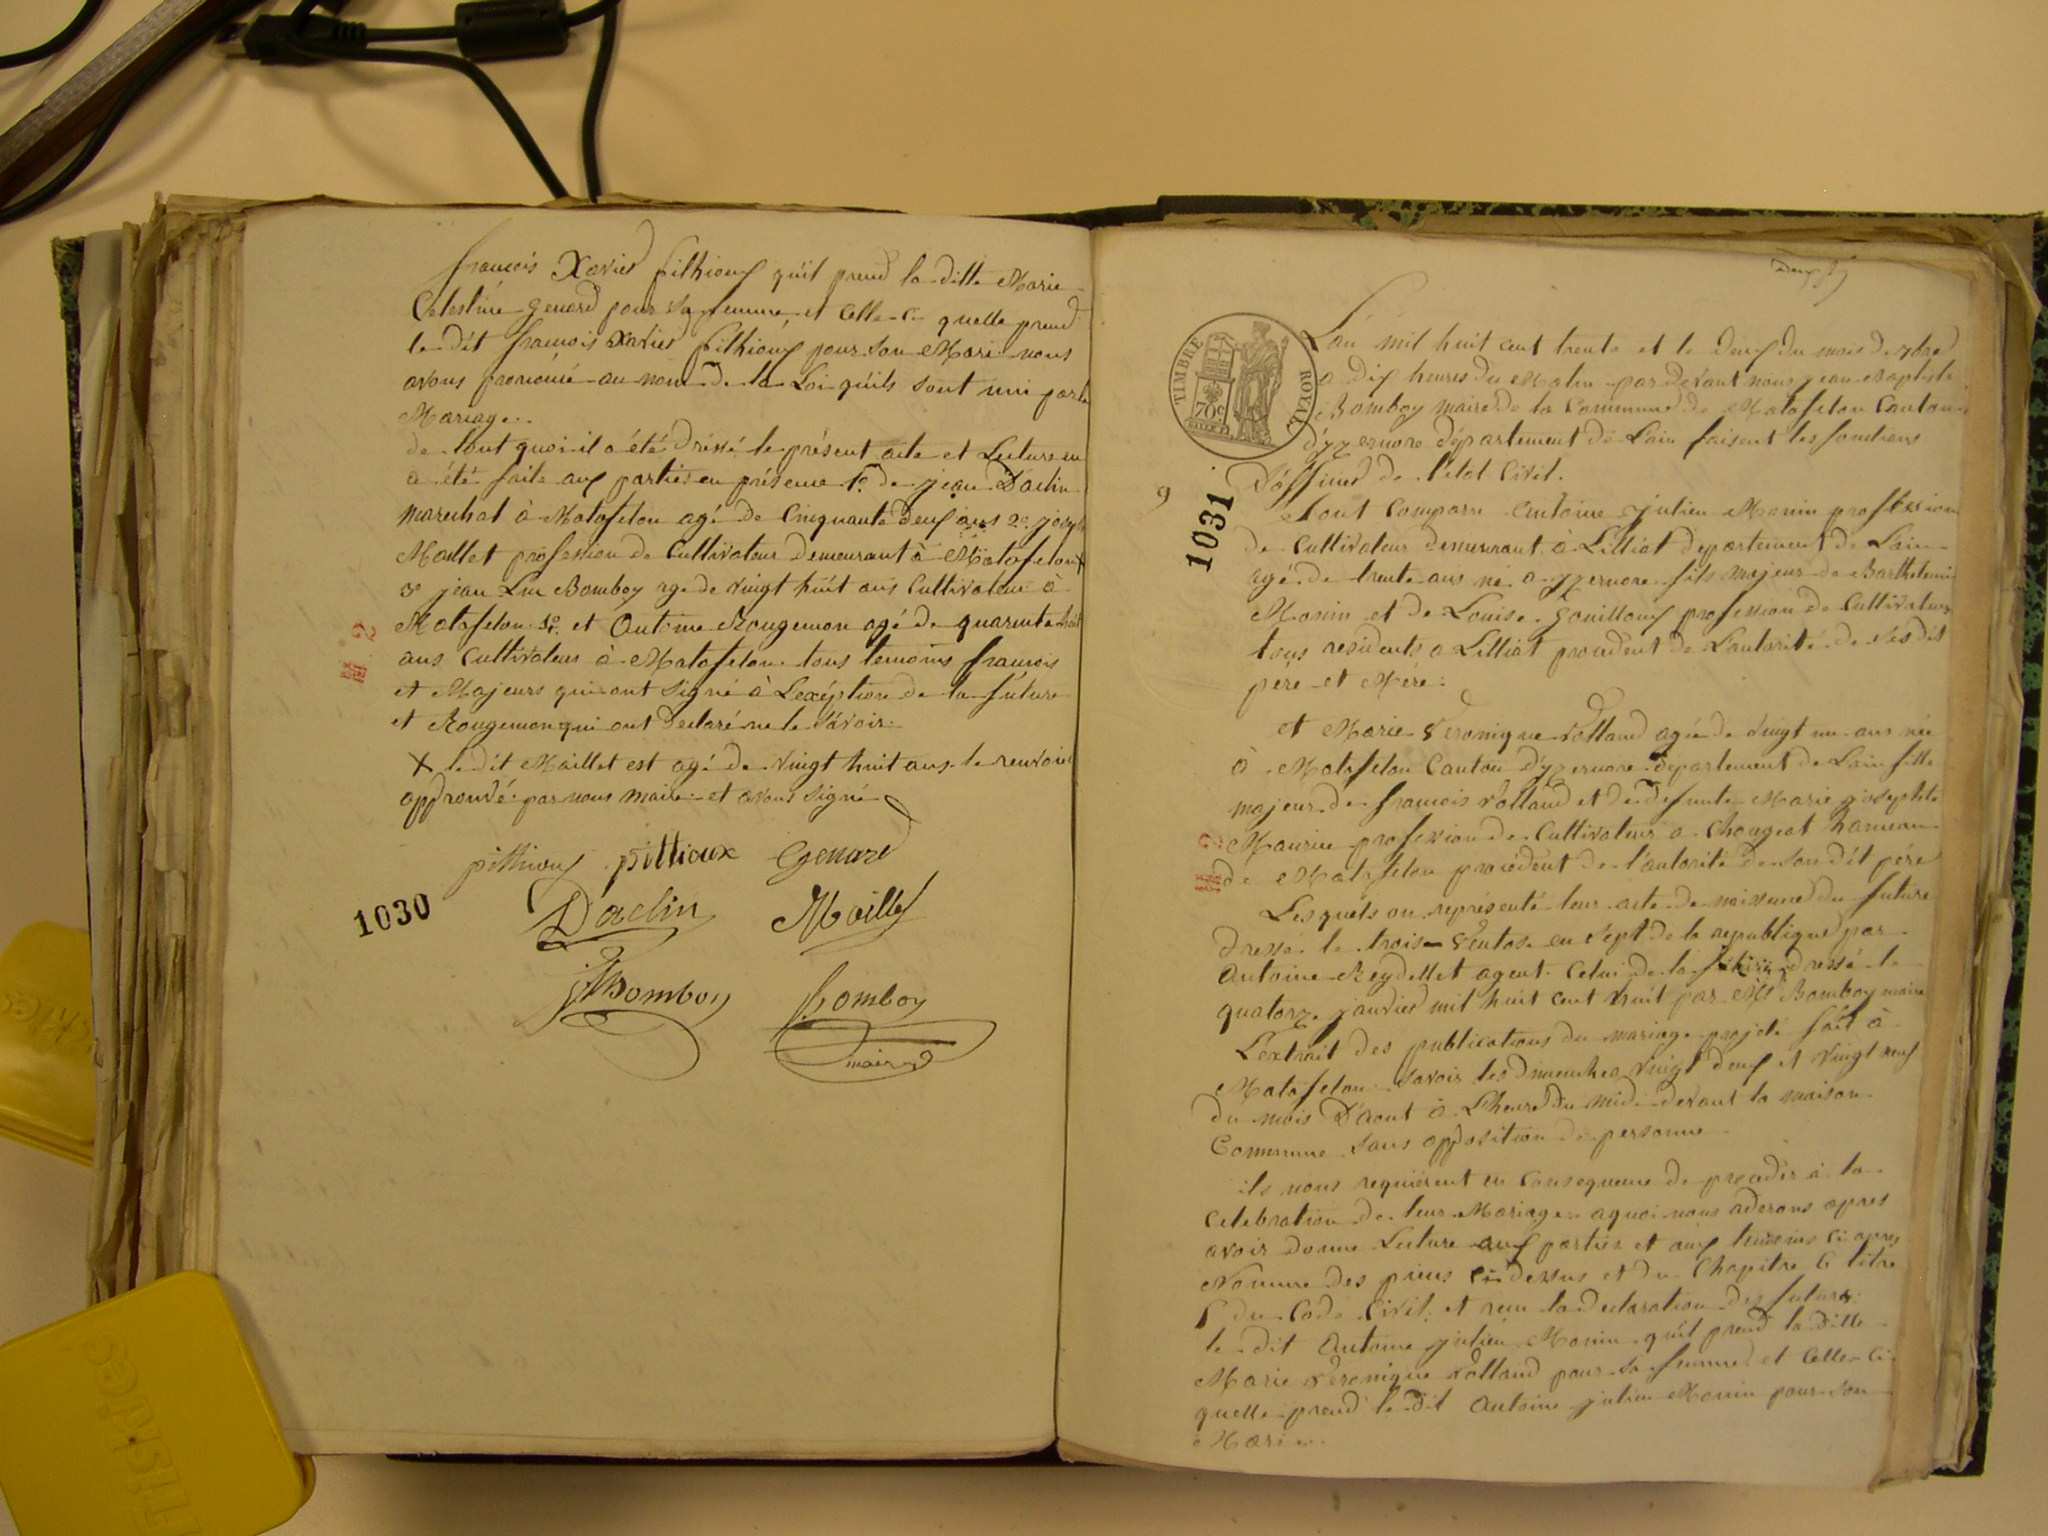 françois Xavier pilhioux qu'il prend la ditte Marie
Celestine genard pour sa femme, et celle-ci quelle prend
le dit françois Xavier pilhioux pour son Mari nous
avons prononcé au nom de la Loi quils sont uni par le
Mariage.
de tout quoi il a été dressé le présent acte et Lecture en
a été faite aux parties en présence 1º de jean D'aclin
marechal à Matafelon agé de Cinquante deux ans 2º joseph
Maillet profession de Cultivateur demeurant à Matafelon X
3º jean Luc Bomboy age de vingt huit ans Cultivateur à
Matafelon et Antoine Rougemon agé de quarente huit
ans Cultivateur à Matafelon tous temoins françois
et Majeurs qui ont signé à Lexéption de la future
et Rougemon qui ont declaré ne le savoir.
X le dit Maillet est agé de vingt huit ans le renvoi
approuvé par nous maire et avons signé
pithioux pittioux Genard
1030
D'aclin Maillet
Bomboy Bomboy
maire
TIMBRE ROYAL
70c
L'an mil huit cent trente et le deux du mois de 7bre
a dix heures du Matin par devant nous jean Baptiste
Bomboy maire de la Commune de Matafelon Canton
d'yzernore département de Lain faisent les fonctions
d'officier de l'état Civil.
9
1031
Sont Comparu Antoine julien Monin profession
de Cultivateur demeurant à Lilliat departement de Lain
agé de trente ans né a yzernore fils majeur de Barthelemi
Monin et de Louise gouilloux profession de Cultivateur
tous residents a Lilliat procedent de Lautorité de ses dit
père et Mère:
et Marie Veronique Volland agée de vingt un ans née
à Matafelon Canton d'yzernore departement de Lain fille
majeur de françois Volland et de defunte Marie josephte
Maurin profession de Cultivateur a Chougeat hameau
de Matafelon procedent de l'autorité de son dit père
Lesquels on représenté leur acte de naissance du future
dressé le trois Ventose en sept de la republique par
Antoine Reydellet agent. Celui de la future dressé le
quatorze janvier mil huit cent huit par Mr Bomboy maire
L'extrait des publications du mariage projeté fait à
Matafelon savoir les dimenches vingt deux et vingt neuf
du mois D'aout à L'heure du midi devant la maison
Commune sans opposition de personne
ils nous requièrent en Consequence de proceder à la
Celebration de leur Mariage aquoi nous aderons apres
avoir donné Lecture aux parties et aux temoins ci apres
Nommé des pieces ci dessus et du Chapitre 6 titre
5 du Code Civil. et recu la declaration des futurs
le dit Antoine julien Monin qu'il prend la ditte
Marie Veronique Volland pour sa femme et Celle-Ci
quelle prend le dit Antoine julien Monin pour son
Mari
Tislades